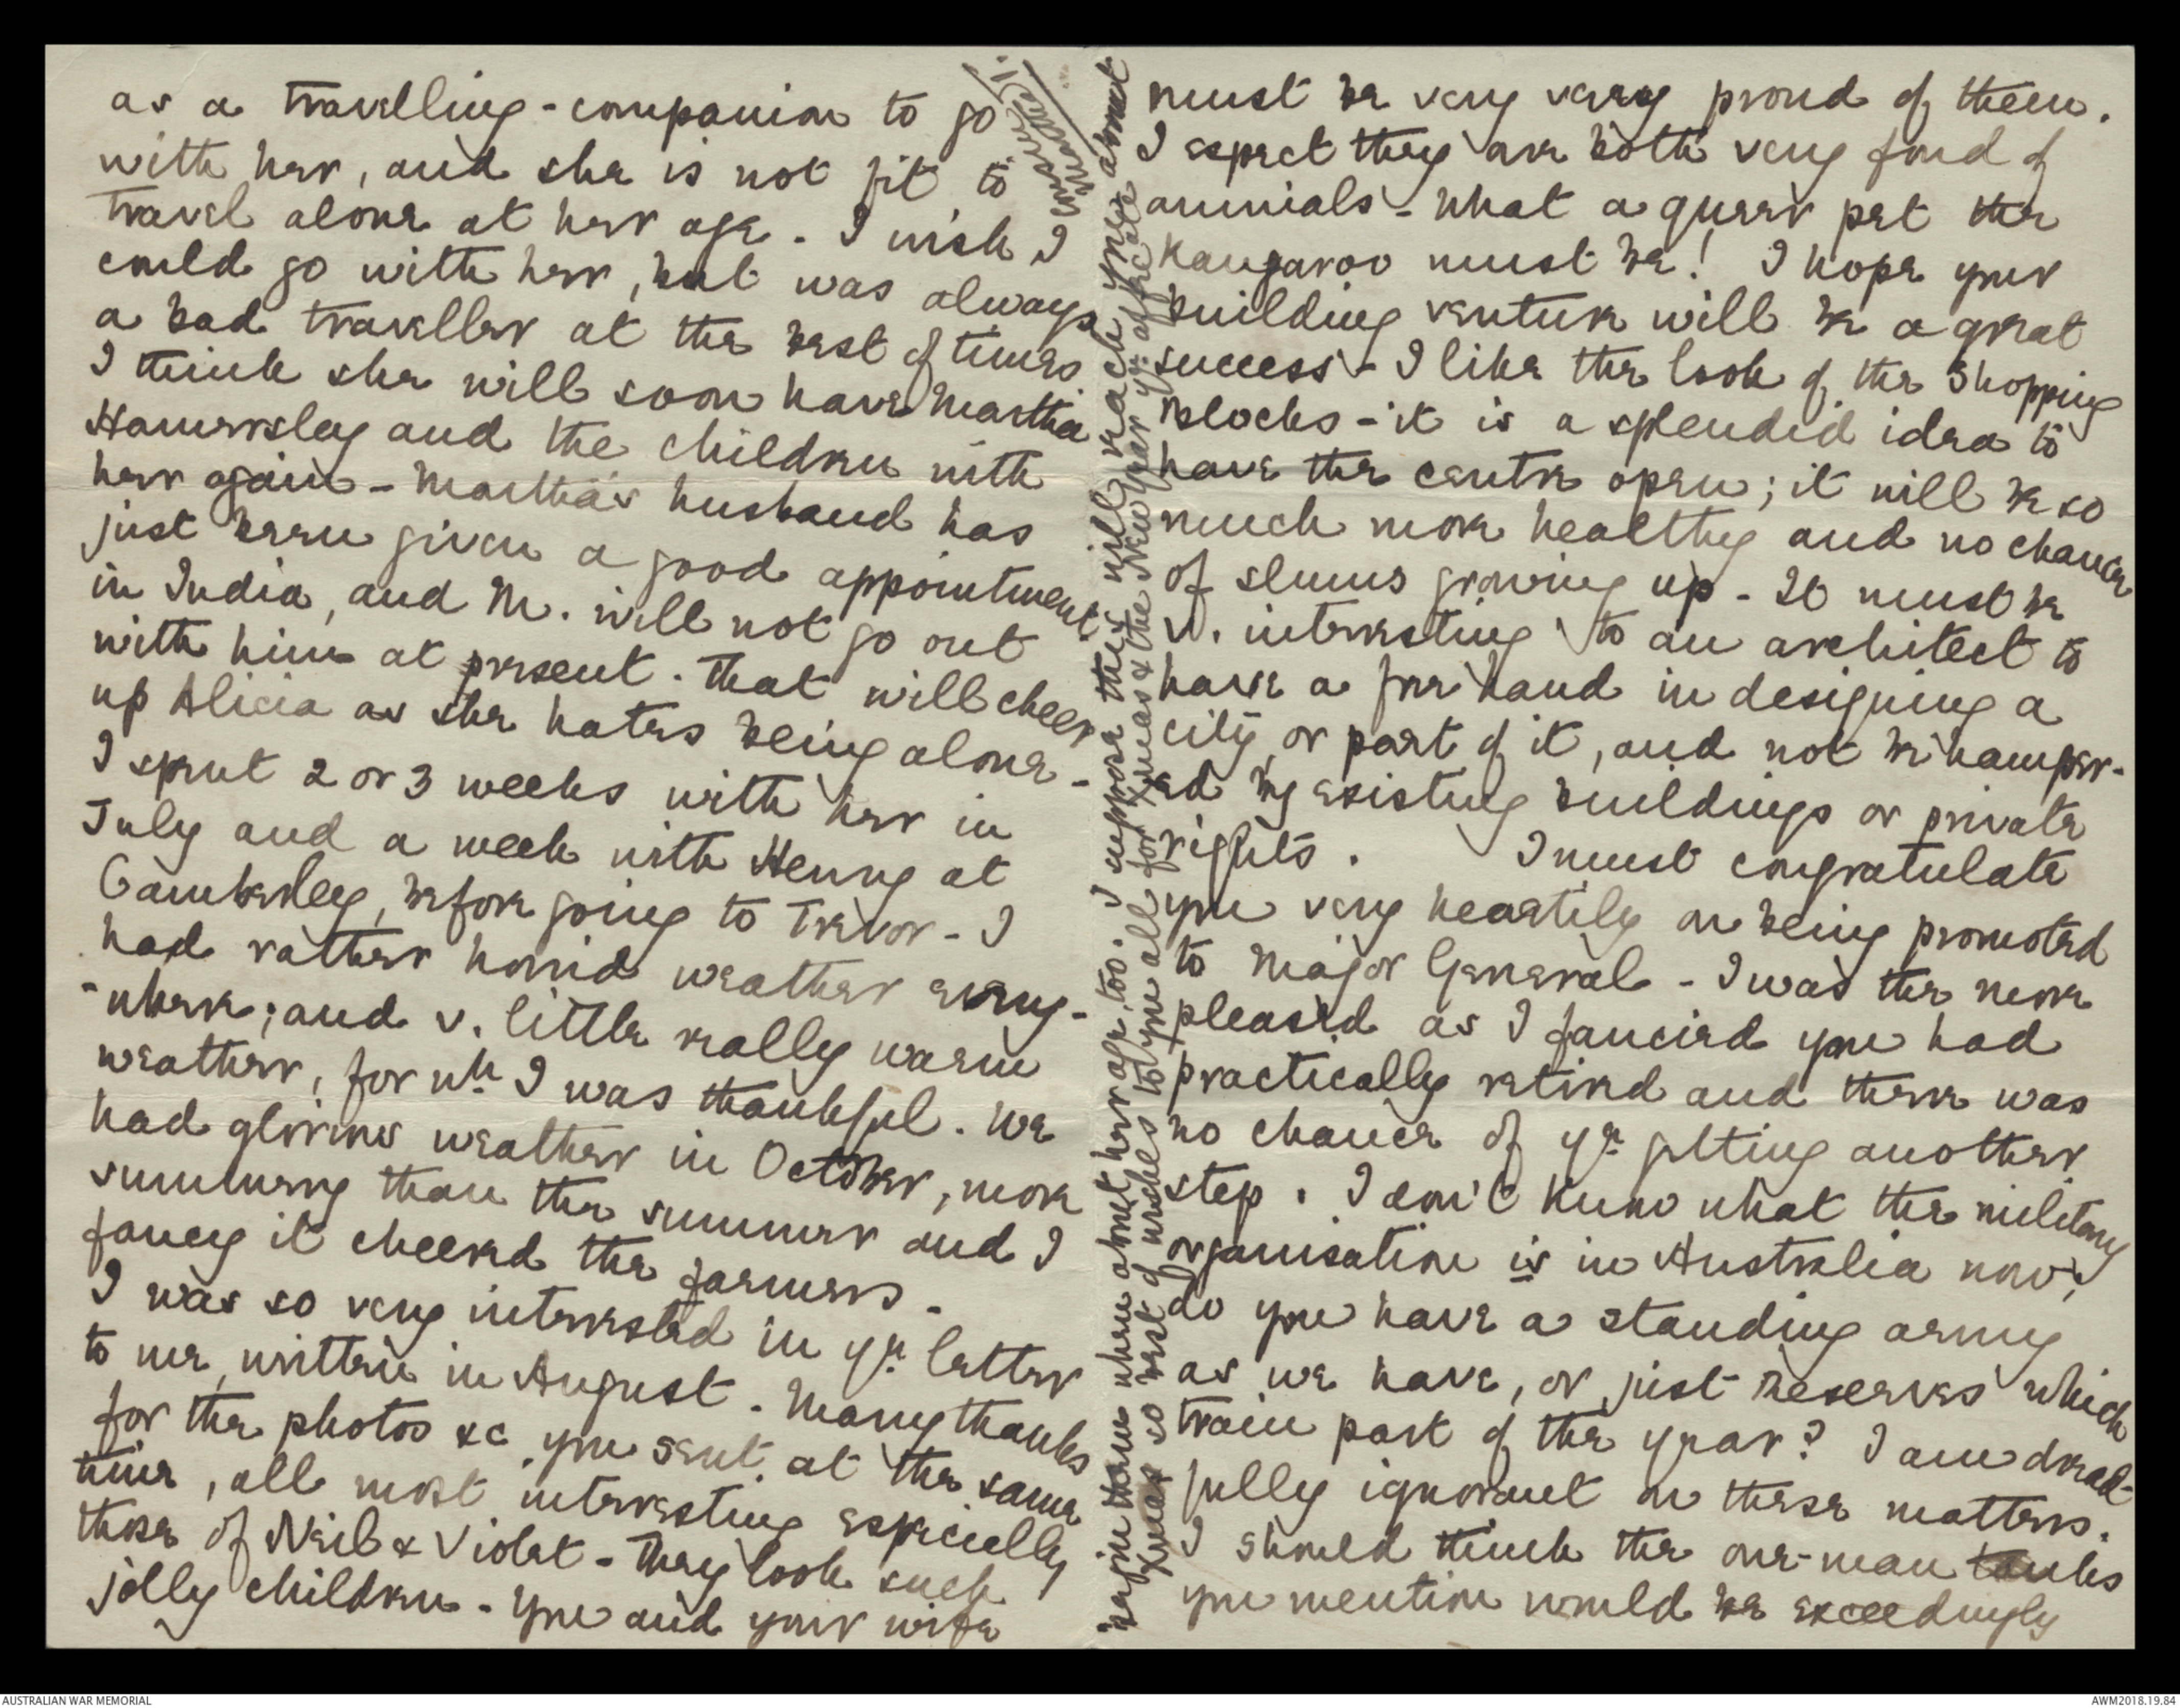 as a travelling-companion to go
with her, and she is not fit to
travel alone at her age. I wish I
could go with her, but was always
a bad traveller at the best of times.
I think she will soon have Martha
Hamersley and the children with
her again - Martha's husband has
just been given a good appointment
in India, and M. will not go out
with him at present. That will cheer
up Alicia as she hates being alone -
I spent 2 or 3 weeks with her in
July and a week with Henry at
Camberley, before going to Trevor - I
had rather horrid weather every-
-where; and v. little really warm
weather, for wh I was thankful. We
had glorious weather in October, more
summery than the summer and I
fancy it cheered the farmers -
I was so very interested in yr. letter
to me, written in August. Many thanks
for the photos &c you sent at the same
time, all most interesting especially
those of Neil & Violet - They look such
jolly children - You and your wife
must be very very proud of them.
I expect they are both very fond of
animals - what a queer pet the
Kangaroo must be! I hope your
building venture will be a great
success - I like the look of the Shopping
Blocks - it is a splendid idea to
have the centre open; it will be so
much more healthy and no chance
of slums growing up - It must be
v. interesting to an architect to
have a free hand in designing a
city, or part of it, and not be hamper-
ed by existing buildings or private
rights. I must congratulate
you very heartily on being promoted
to Major General - I was the more
pleased as I fancied you had
practically retired and there was
no chance of yr. getting another
step. I don't know what the military
organisation is in Australia now;
do you have a standing army
as we have, or just Reserves which
train part of the year? I am dread-
fully ignorant on these matters.
I should think the one-man tanks
you mention would be exceedingly
begin than when about her age, too. I suppose this will reach you about
Xmas so best of wishes to you all for Xmas & the New Year yr. affecate
cousin